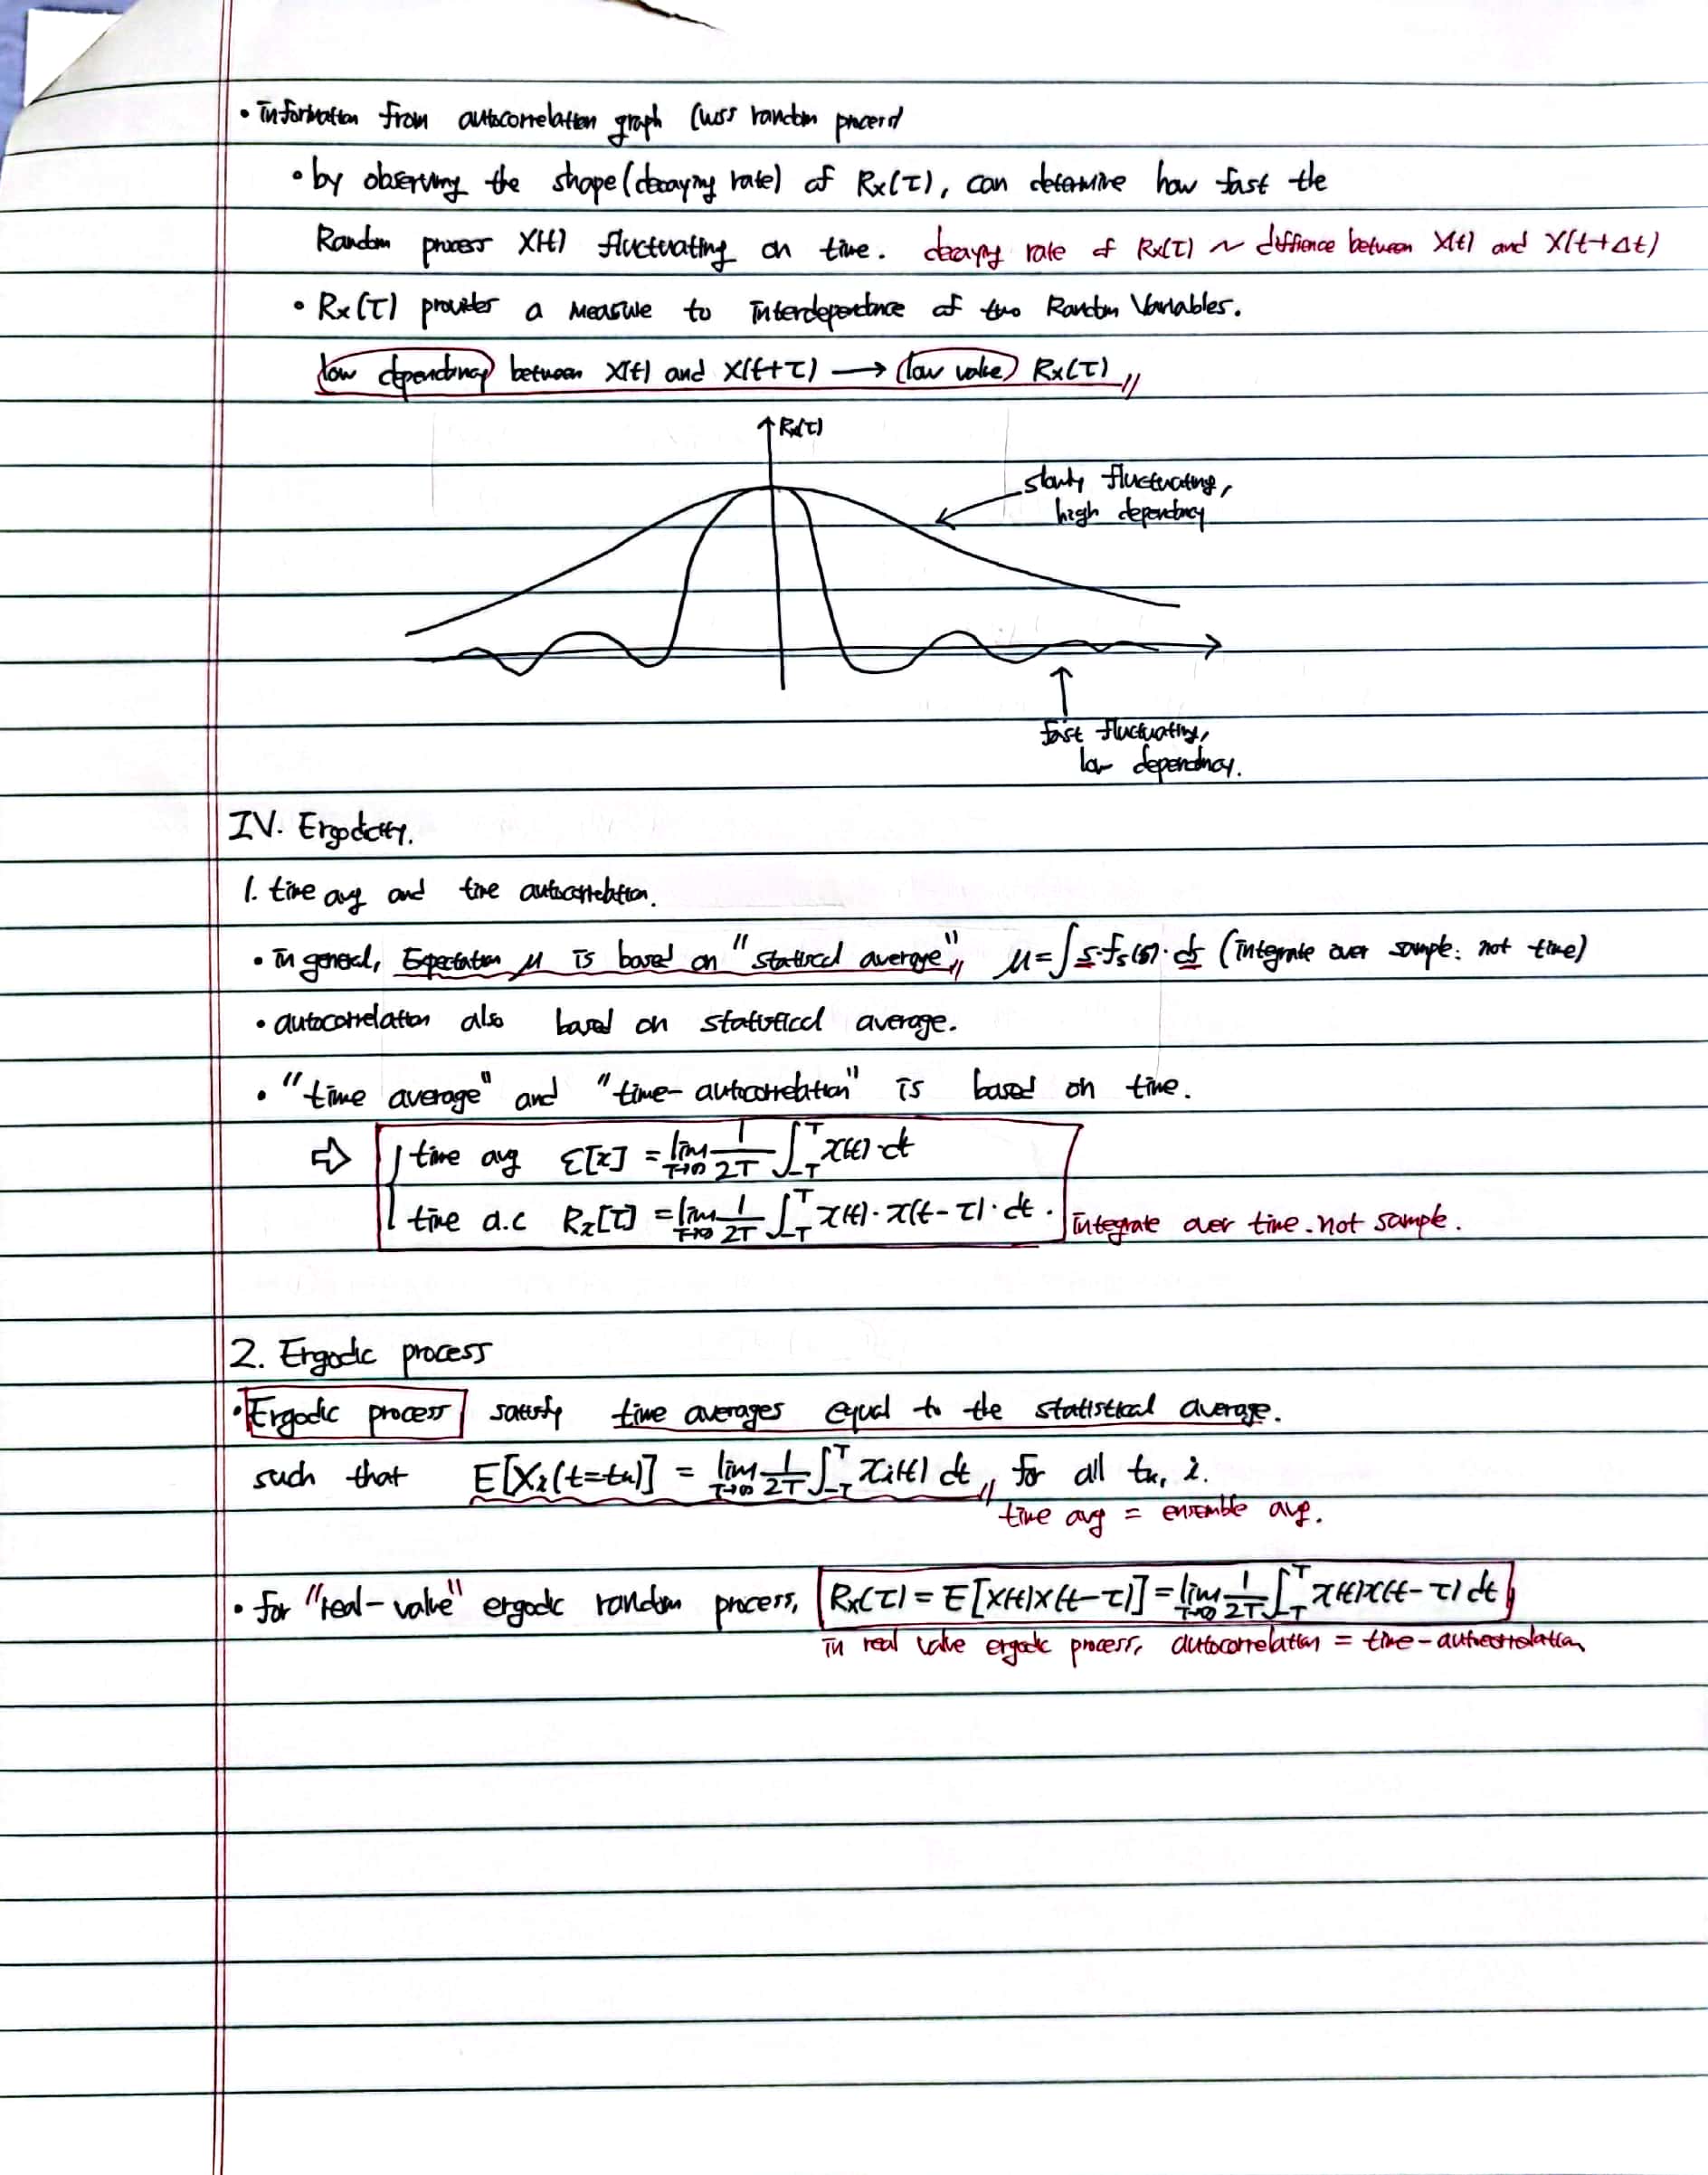 • Information from autocorrelation graph (WSS random process)
• by observing the shape (decaying rate) of Rx(τ), can determine how fast the
Random process X(t) fluctuating on time. decaying rate of Rx(τ) ~ diffience between X(t) and X(t+Δt)
• Rx(τ) provides a measure to interdependence of two Random Variables.
low dependency between X(t) and X(t+τ) → (low value) Rx(τ)
Rx(τ)
slowly fluctuating,
high dependency
fast fluctuating,
low dependency.
IV. Ergodicity.
1. time avg and time autocorrelation.
• in general, Expectation μ is based on "statistical average", μ=∫s·fs(s)·ds (integrate over sample. not time)
• autocorrelation also based on statistical average.
• "time average" and "time-autocorrelation" is based on time.
⇨ { time avg ε[x] = lim T→∞ 1/2T ∫_-T^T x(t)·dt
time a.c Rx[τ] = lim T→∞ 1/2T ∫_-T^T x(t)·x(t-τ)·dt. integrate over time. not sample.
2. Ergodic process
• Ergodic process satisfy time averages equal to the statistical average.
such that E[Xi(t=tk)] = lim T→∞ 1/2T ∫_-T^T xi(t) dt, for all tk, i.
time avg = ensemble avg.
• for "real-value" ergodic random process, Rx(τ) = E[X(t)X(t-τ)] = lim T→∞ 1/2T ∫_-T^T x(t)x(t-τ) dt
in real value ergodic process, autocorrelation = time-autocorrelation